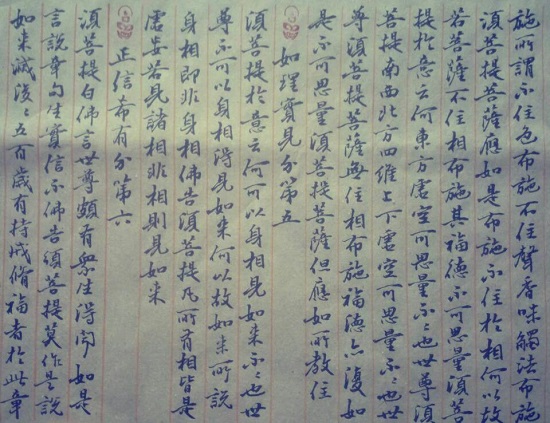 施所謂不住色布施不住聲香味觸法布施
須菩提菩薩應如是布施不住於相何以故
若菩薩不住相布施其福德不可思量須菩
提於意云何東方虛空可思量不〻也世尊須
菩提南西北方四維上下虛空可思量不〻也世
尊須菩提菩薩無住相布施福德亦復如
是不可思量須菩提菩薩但應如所教住
如理實見分第五
須菩提於意云何可以身相見如來不〻也世
尊不可以身相得見如來何以故如來所說
身相即非身相佛告須菩提凡所有相皆是
虛妄若見諸相非相則見如來
正信希有分第六
須菩提白佛言世尊頗有眾生得聞如是
言說章句生實信不佛告須菩提莫作是說
如來滅後〻五百歲有持戒脩福者於此章